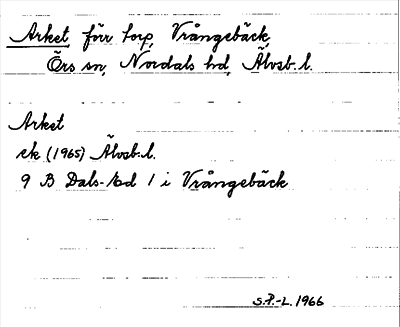 Arket, förr torp, Vrångebäck,
Örs sn, Nordals hd, Älvsb. l.
Arket
ek (1965) Älvsb. l.
9 B Dals-Ed 1 i Vrångebäck
S.P.-L. 1966